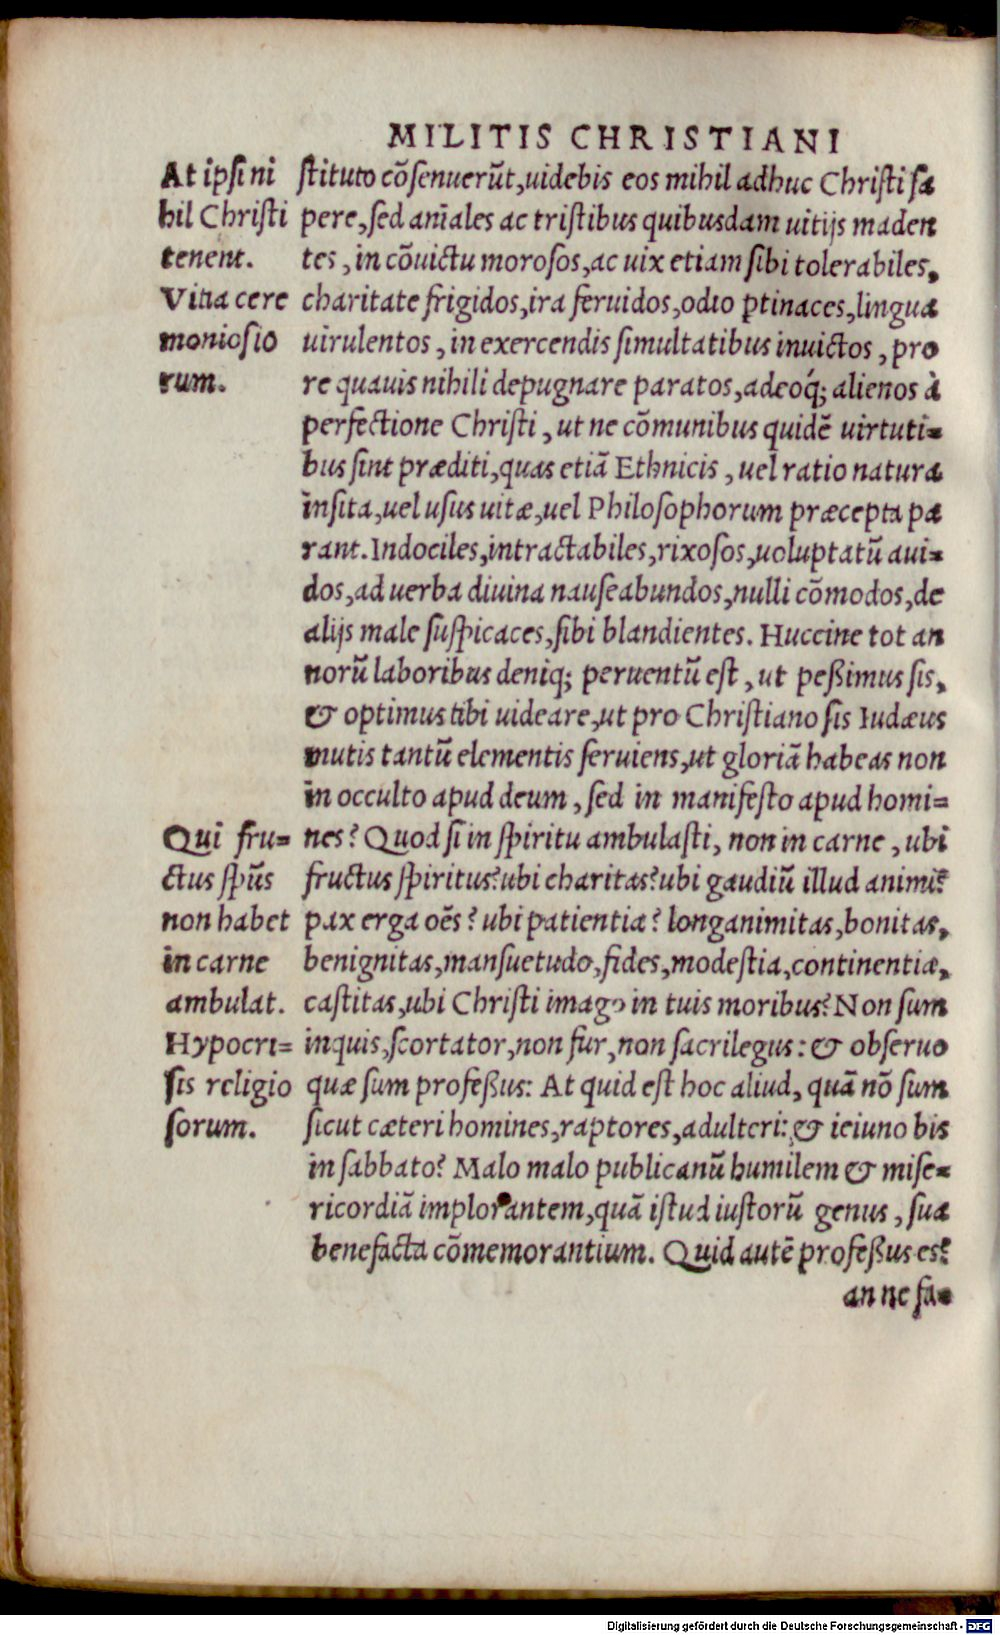 MILITIS CHRISTIANI
At ipsi ni
hil Christi
tenent.
Vitia cere
moniosio
rum.
stituto cõsenuerũt, uidebis eos mihil adhuc Christi sa
pere, sed anĩales ac tristibus quibusdam uitijs maden
tes, in cõuictu morosos, ac uix etiam sibi tolerabiles,
charitate frigidos, ira feruidos, odio ptinaces, lingua
uirulentos, in exercendis simultatibus inuictos, pro
re quauis nihili depugnare paratos, adeoq́; alienos à
perfectione Christi, ut ne cõmunibus quidẽ uirtuti=
bus sint præditi, quas etiã Ethnicis, uel ratio natura
insita, uel usus uitæ, uel Philosophorum præcepta pa
rant. Indociles, intractabiles, rixosos, uoluptatũ aui=
dos, ad uerba diuina nauseabundos, nulli cõmodos, de
alijs male suspicaces, sibi blandientes. Huccine tot an
norũ laboribus deniq; peruentũ est, ut peßimus sis,
& optimus tibi uideare, ut pro Christiano sis Iudæus
mutis tantũ elementis seruiens, ut gloriã habeas non
in occulto apud deum, sed in manifesto apud homi=
nes? Quod si in spiritu ambulasti, non in carne, ubi
fructus spiritus? ubi charitas? ubi gaudiũ illud animi?
pax erga oẽs? ubi patientia? longanimitas, bonitas,
benignitas, mansuetudo, fides, modestia, continentia,
castitas, ubi Christi imago in tuis moribus? Non sum
inquis, scortator, non fur, non sacrilegus: & obseruo
quæ sum profeßus: At quid est hoc aliud, quã nõ sum
sicut cæteri homines, raptores, adulteri: & ieiuno bis
in sabbato? Malo malo publicanũ humilem & mise=
ricordiã implorantem, quã istud iustorũ genus, sua
benefacta cõmemorantium. Quid autẽ profeßus es?
Qui fru=
ctus spũs
non habet
in carne
ambulat.
Hypocri=
sis religio
sorum.
an ne fa=
Digitalisierung gefördert durch die Deutsche Forschungsgemeinschaft - DFG